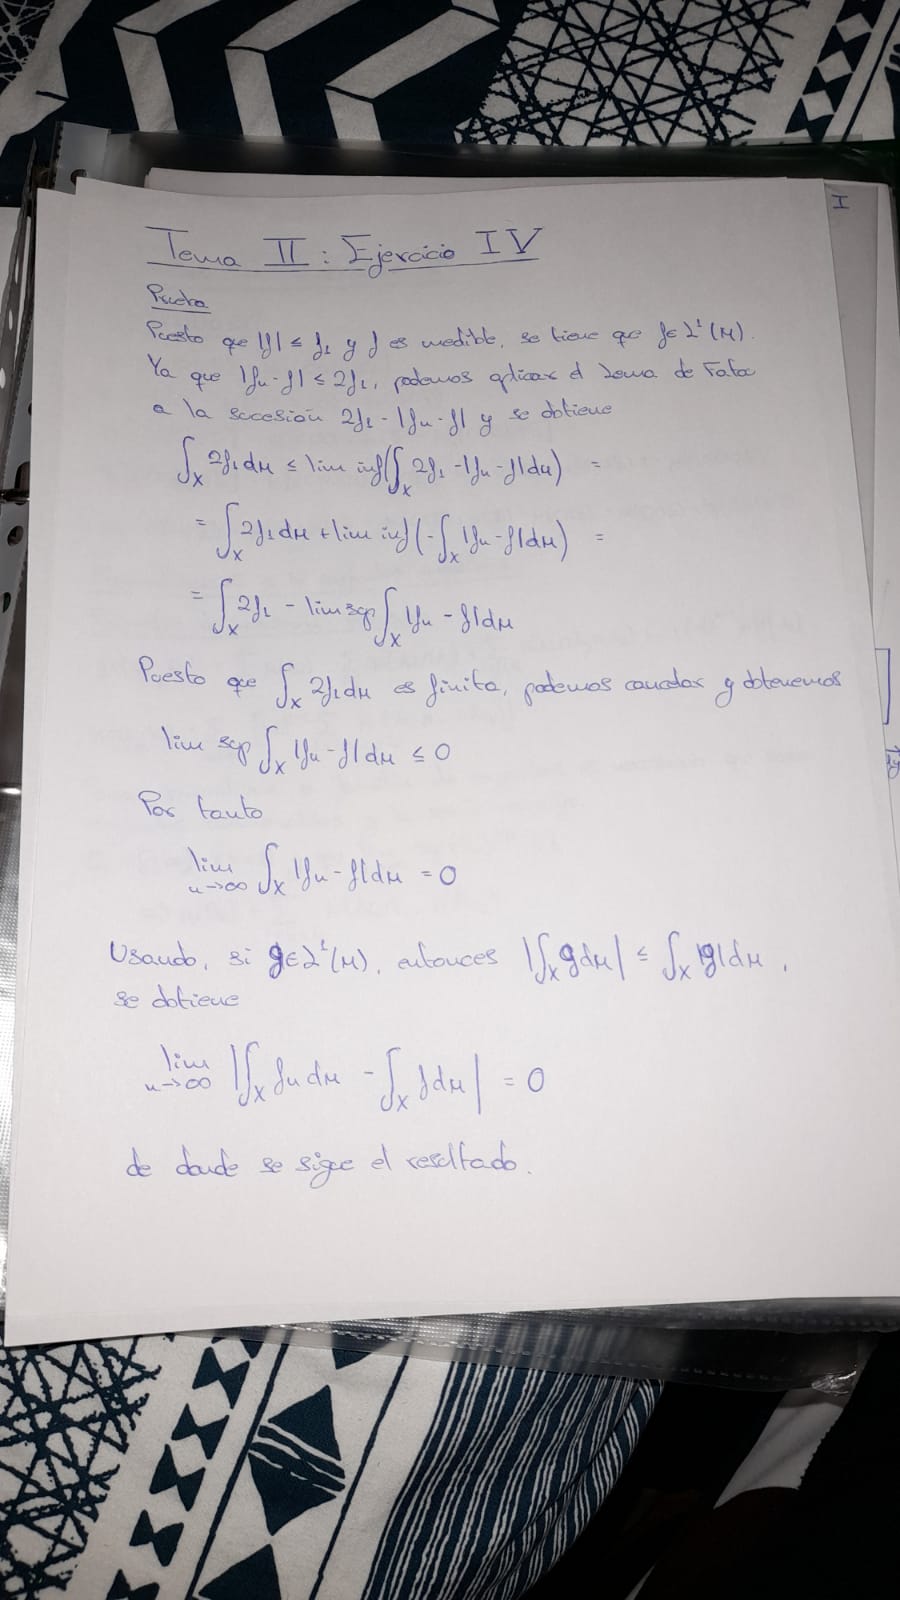 I
Tema II : Ejercicio IV
Prueba
Puesto que |f| ≤ f₁ y f es medible, se tiene que f ∈ L¹(μ).
Ya que |fn - f| ≤ 2f₁, podemos aplicar el Lema de Fatou
a la sucesión 2f₁ - |fn - f| y se obtiene
∫_X 2f₁dμ ≤ lim inf(∫_X 2f₁ - |fn - f|dμ) =
= ∫_X 2f₁dμ + lim inf(-∫_X |fn - f|dμ) =
= ∫_X 2f₁ - lim sup ∫_X |fn - f|dμ
Puesto que ∫_X 2f₁dμ es finita, podemos cancelar y obtenemos
lim sup ∫_X |fn - f|dμ ≤ 0
Por tanto
lim n→∞ ∫_X |fn - f|dμ = 0
Usando, si g ∈ L¹(μ), entonces |∫_X g dμ| ≤ ∫_X |g|dμ,
se obtiene
lim n→∞ |∫_X fn dμ - ∫_X f dμ| = 0
de donde se sigue el resultado.